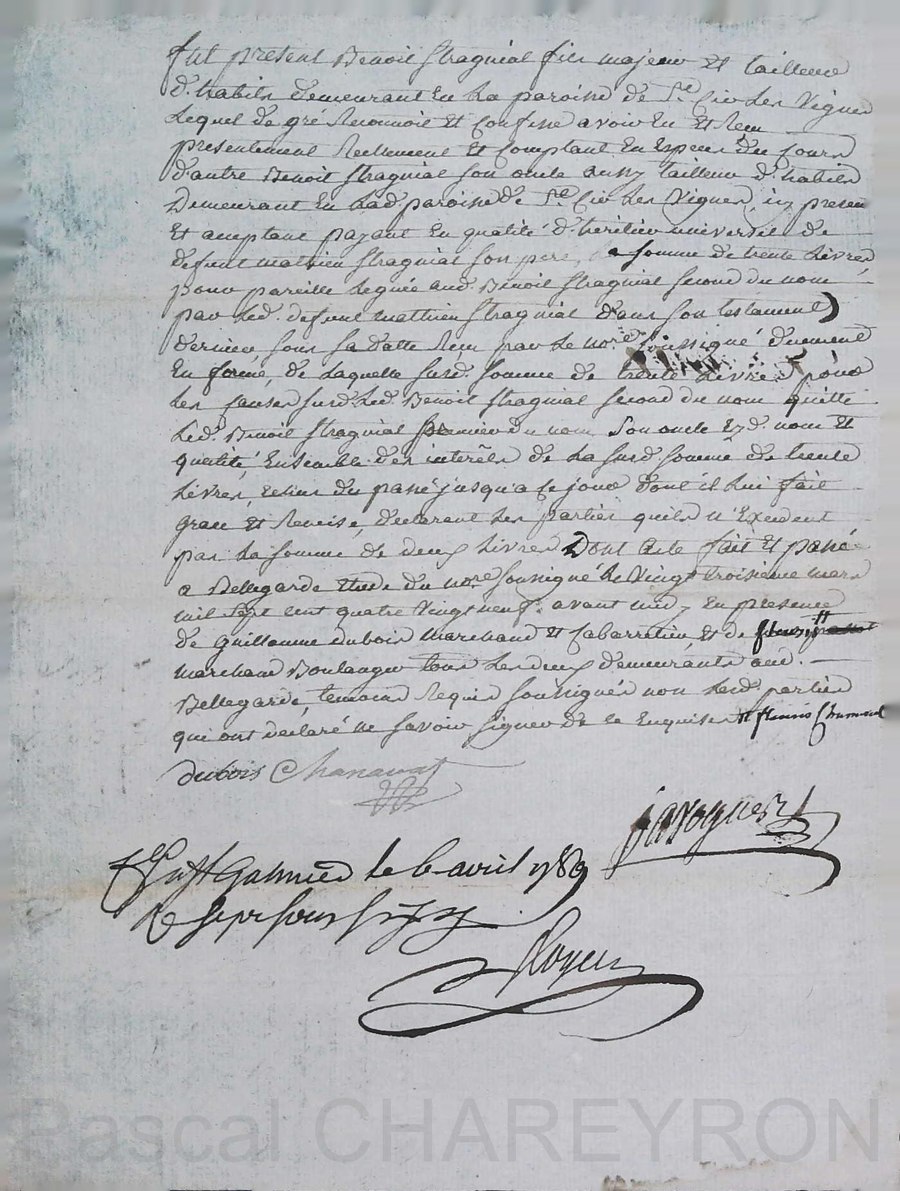 fut present Benoit Stragniat fils majeur et tailleur
d'habits demeurant en la paroisse de St Cir les Vignes
Lequel de gré Reconnoit et Confesse avoir Eu et Reçu
presentement Reellement et Comptant En Especes du Cours
d'autre Benoit Stragniat son oncle aussy tailleur d'habits
Demeurant En lad. paroisse de St Cir les Vignes, icy present
Et acceptant payant En qualité d'heritier universel de
defunt mathieu Stragniat son pere, la somme de trente Livres
pour pareille Leguée aud. Benoit Stragniat second du nom
par led. defunt matthieu Stragniat dans son testament
dernier sous sa datte Reçu par le nore. soussigné duement
En forme, de laquelle susd. somme de trente Livres pour
les causes susd. led. Benoit Stragniat second du nom quitte
led. Benoit Stragniat premier du nom son oncle Esd. nom et
qualité Ensemble des interêts de la susd. somme de trente
Livres, echus du passé jusqu'a ce jour dont il lui fait
grace et Remise, declarant les parties qu'ils n'Excedent
pas la somme de deux Livres Dont acte fait et passé
a Bellegarde Etude du nore. soussigné le Vingt troisieme mars
mil sept cent quatre vingt neuf. avant midy En presence
de Guillaume dubois Marchand et Cabarretier et de
marchand Boulanger tous les deux demeurants aud.
Bellegarde, temoins Requis soussignés non lesd. parties
qui ont declaré ne savoir signer de ce Enquises
dubois Chanavat
javogues
le 6 avril 1789
Royer
Pascal CHAREYRON